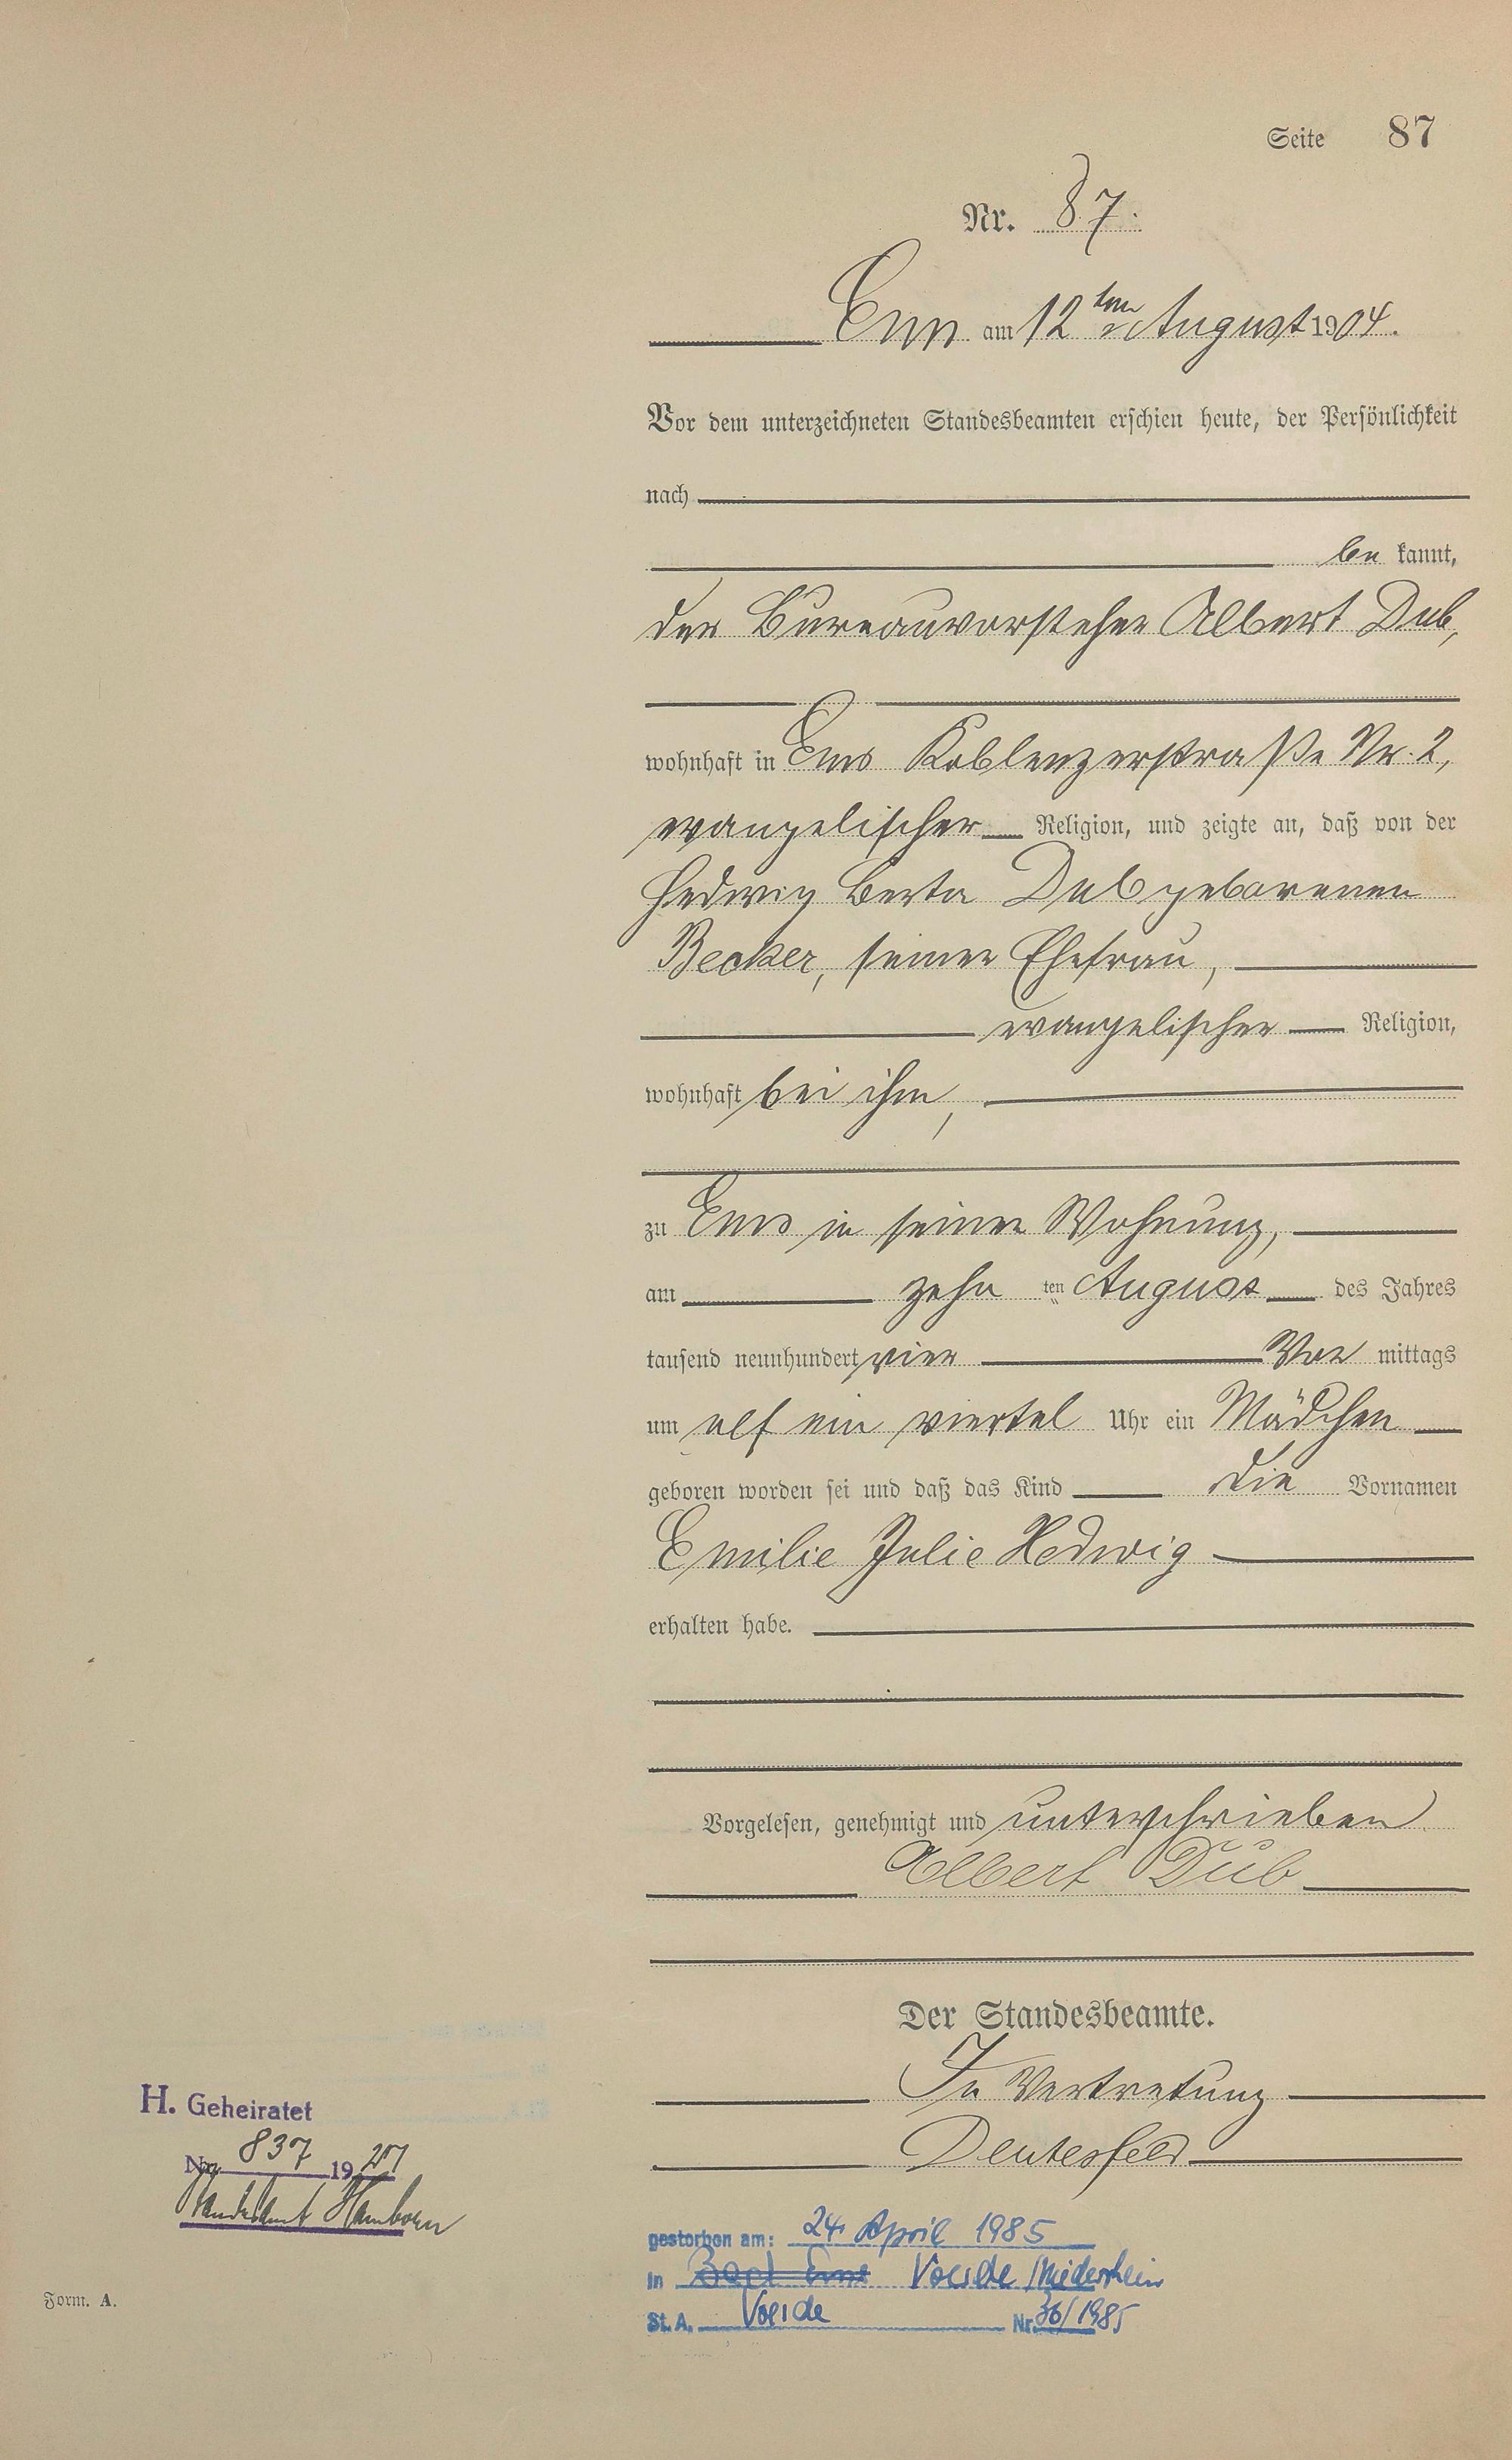 Seite 87
Nr. 87.
Ems am 12ten August 1904.
Vor dem unterzeichneten Standesbeamten erschien heute, der Persönlichkeit
nach
be kannt,
der Bureauvorsteher Albert Dub,
wohnhaft in Ems Koblenzerstraße Nr. 2,
evangelischer Religion, und zeigte an, daß von der
Hedwig Berta Dub geborenen
Becker, seiner Ehefrau,
evangelischer Religion,
wohnhaft bei ihm,
zu Ems in seiner Wohnung,
am zehn ten August des Jahres
tausend neunhundert vier Vor mittags
um elf ein viertel Uhr ein Mädchen
geboren worden sei und daß das Kind die Vornamen
Emilie Julie Hedwig
erhalten habe.
Vorgelesen, genehmigt und unterschrieben
Albert Dub
Der Standesbeamte.
In Vertretung
H. Geheiratet
Nr. 837 1927
Standesamt Hamborn
gestorben am: 24. April 1985
in Bad Ems Voerde/Niederrhein
St. A. Voerde Nr. 36/1985
Form. A.